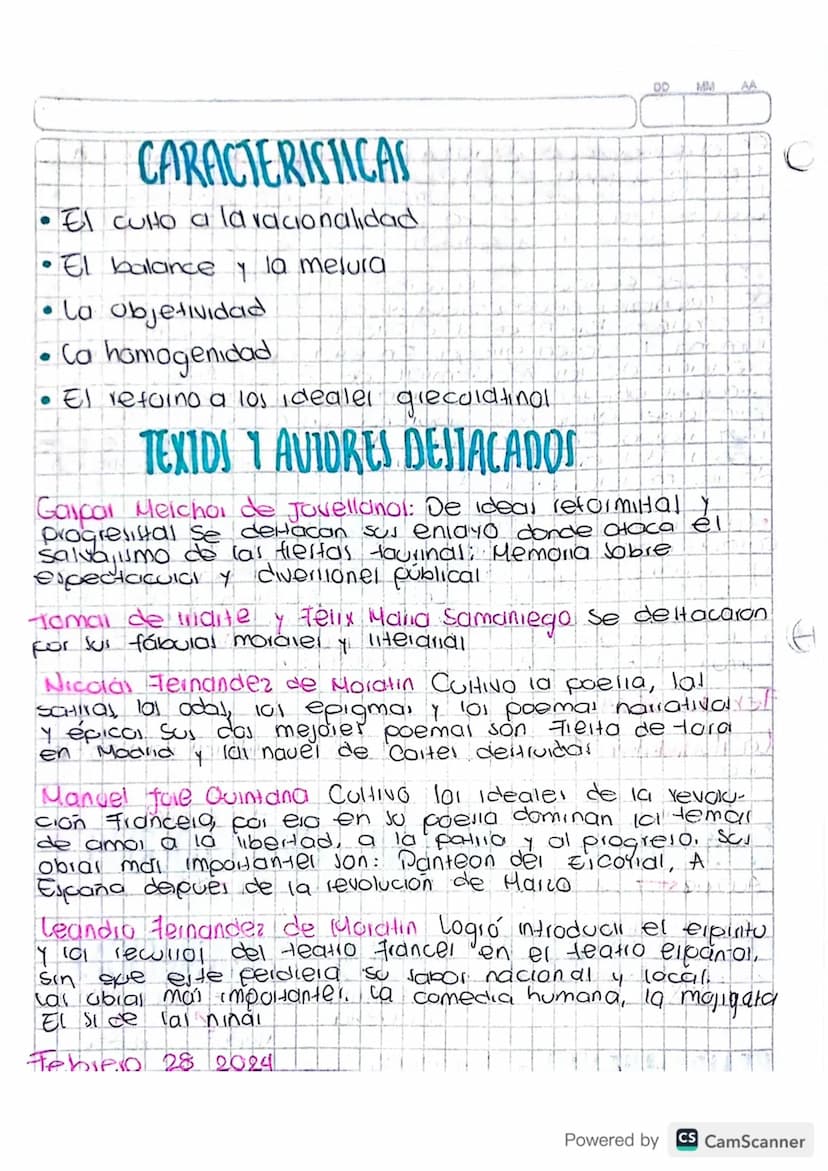 DD MM AA
CARACTERISTICAS
• El culto a la racionalidad
• El balance y la mesura
• La objetividad
• La homogenidad
• El retorno a los ideales grecolatinos
TEXTOS Y AUTORES DESTACADOS
Gaspar Melchor de Jovellanos: De ideas reformistas y
progresistas se destacan sus ensayo donde ataca el
salvajismo de las fiestas taurinas: Memoria sobre
espectaculos y diversiones públicas
Tomas de Iriarte y Félix Maria Samaniego se destacaron
por sus fábulas morales y literarias
Nicolás Fernandez de Moratin Cultivo la poesia, las
satiras, las odas, los epigmas y los poemas narrativos
y épicos sus dos mejores poemas son Fiesta de toros
en Madrid y las naves de Cortes destruidas
Manuel Jose Quintana Cultivó los ideales de la revolu-
cion Francesa, por eso en su poesia dominan los temas
de amor a la libertad, a la patria y al progreso. Sus
obras mas importantes son: Panteon del Escorial, A
España depues de la revolución de Marzo
Leandro Fernandez de Moratin Logró introducir el espiritu
y los recursos del teatro frances en el teatro español,
sin que este perdiera su sabor nacional y local.
Las obras mas importantes. La comedia humana, la mojigata
El si de las ninas
Febrero 28 2024
Powered by CS CamScanner